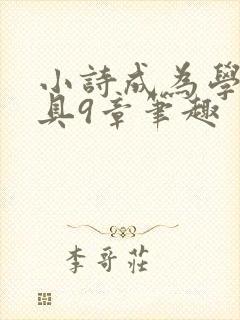 小詩成為學
具9章筆趣
李哥莊